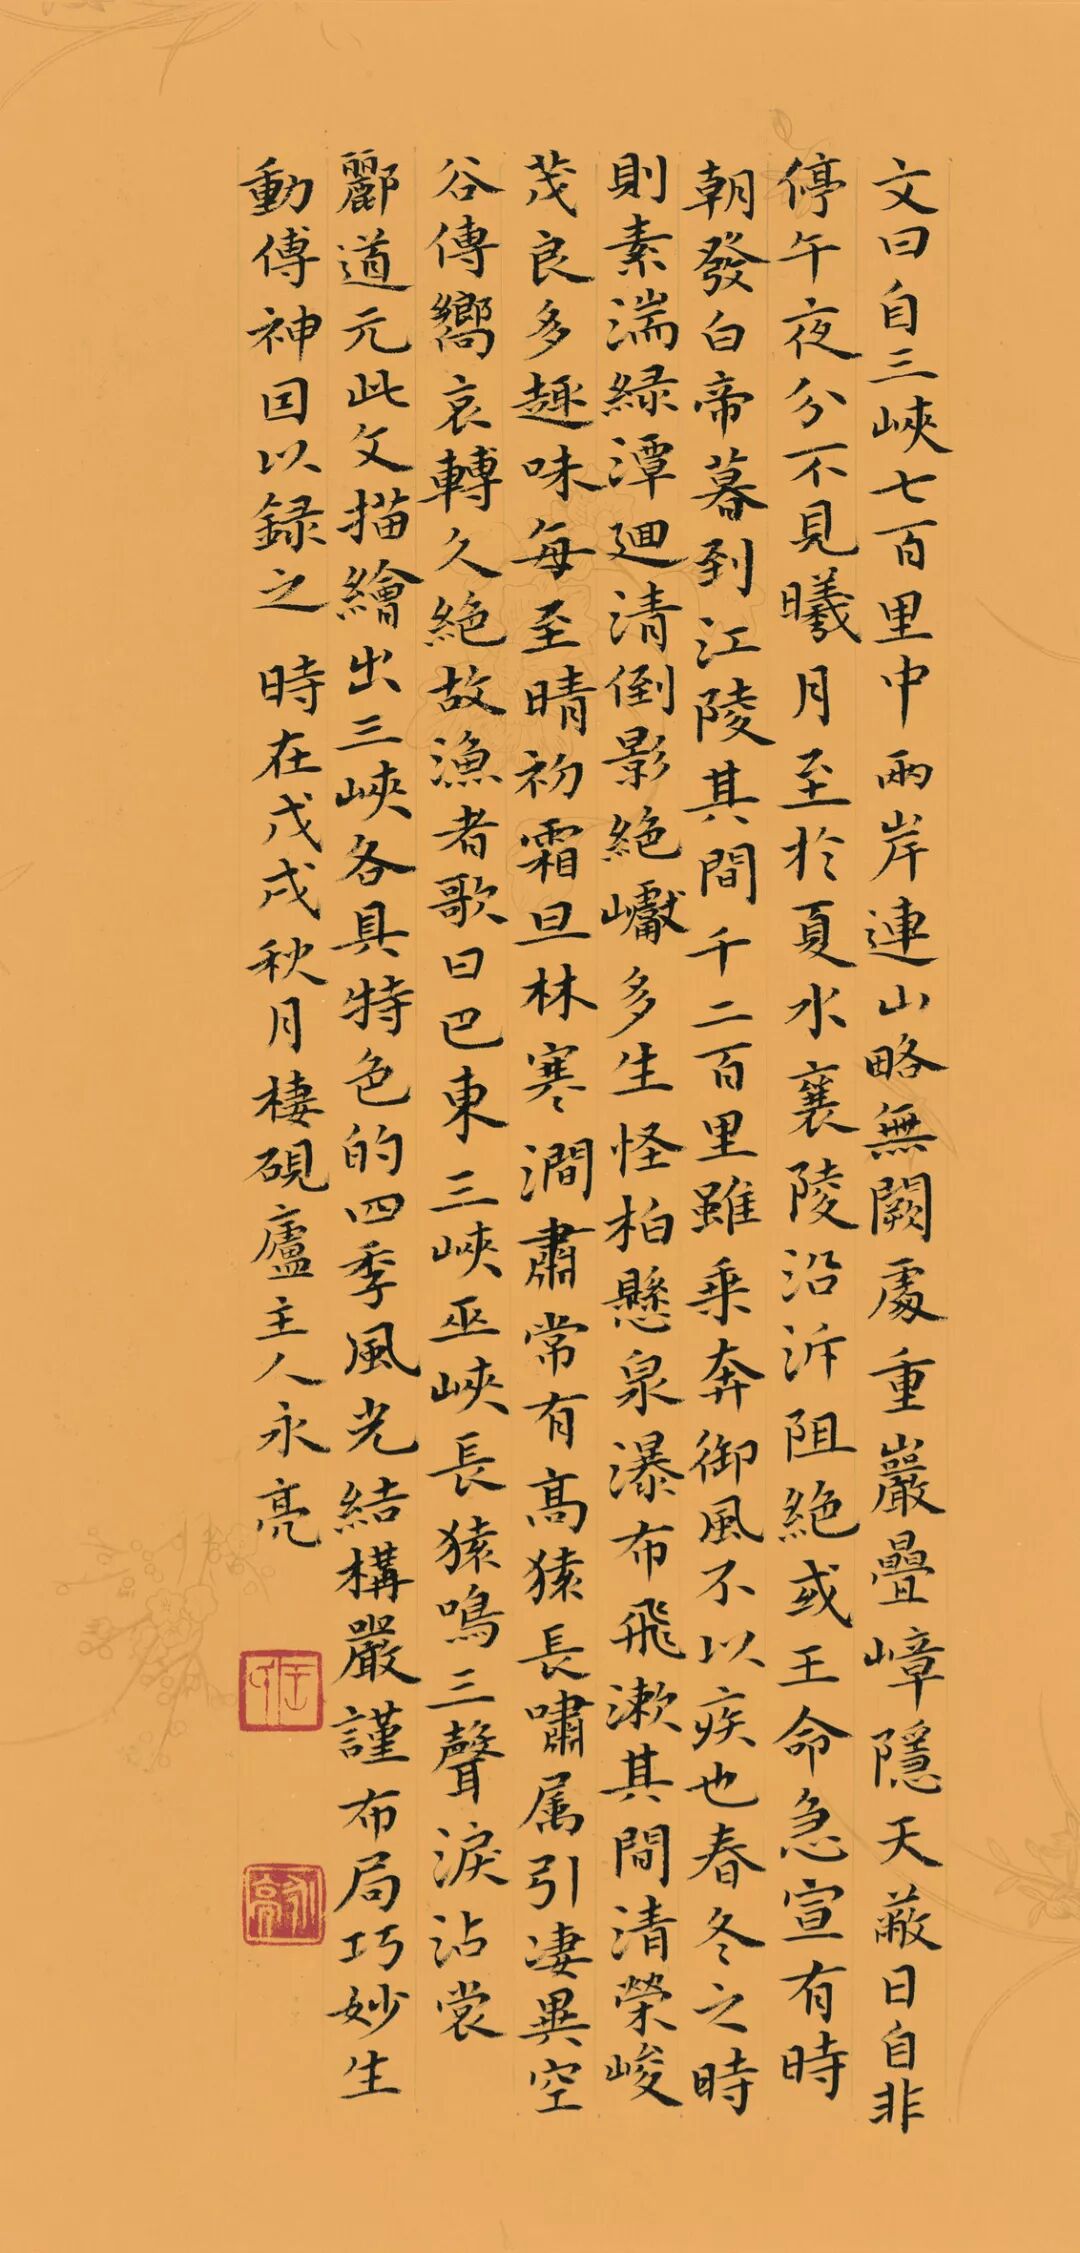 文曰自三峽七百里中兩岸連山略無闕處重巖疊嶂隱天蔽日自非
停午夜分不見曦月至於夏水襄陵沿泝阻絕或王命急宣有時
朝發白帝暮到江陵其間千二百里雖乘奔御風不以疾也春冬之時
則素湍緑潭廻清倒影絕巘多生怪柏懸泉瀑布飛漱其間清榮峻
茂良多趣味每至晴初霜旦林寒澗肅常有高猿長嘯属引凄異空
谷傳嚮哀轉久絕故漁者歌曰巴東三峽巫峽長猿鳴三聲淚沾裳
酈道元此文描繪出三峽各具特色的四季風光結構嚴謹布局巧妙生
動傳神因以録之 時在戊戌秋月棲硯廬主人永亮